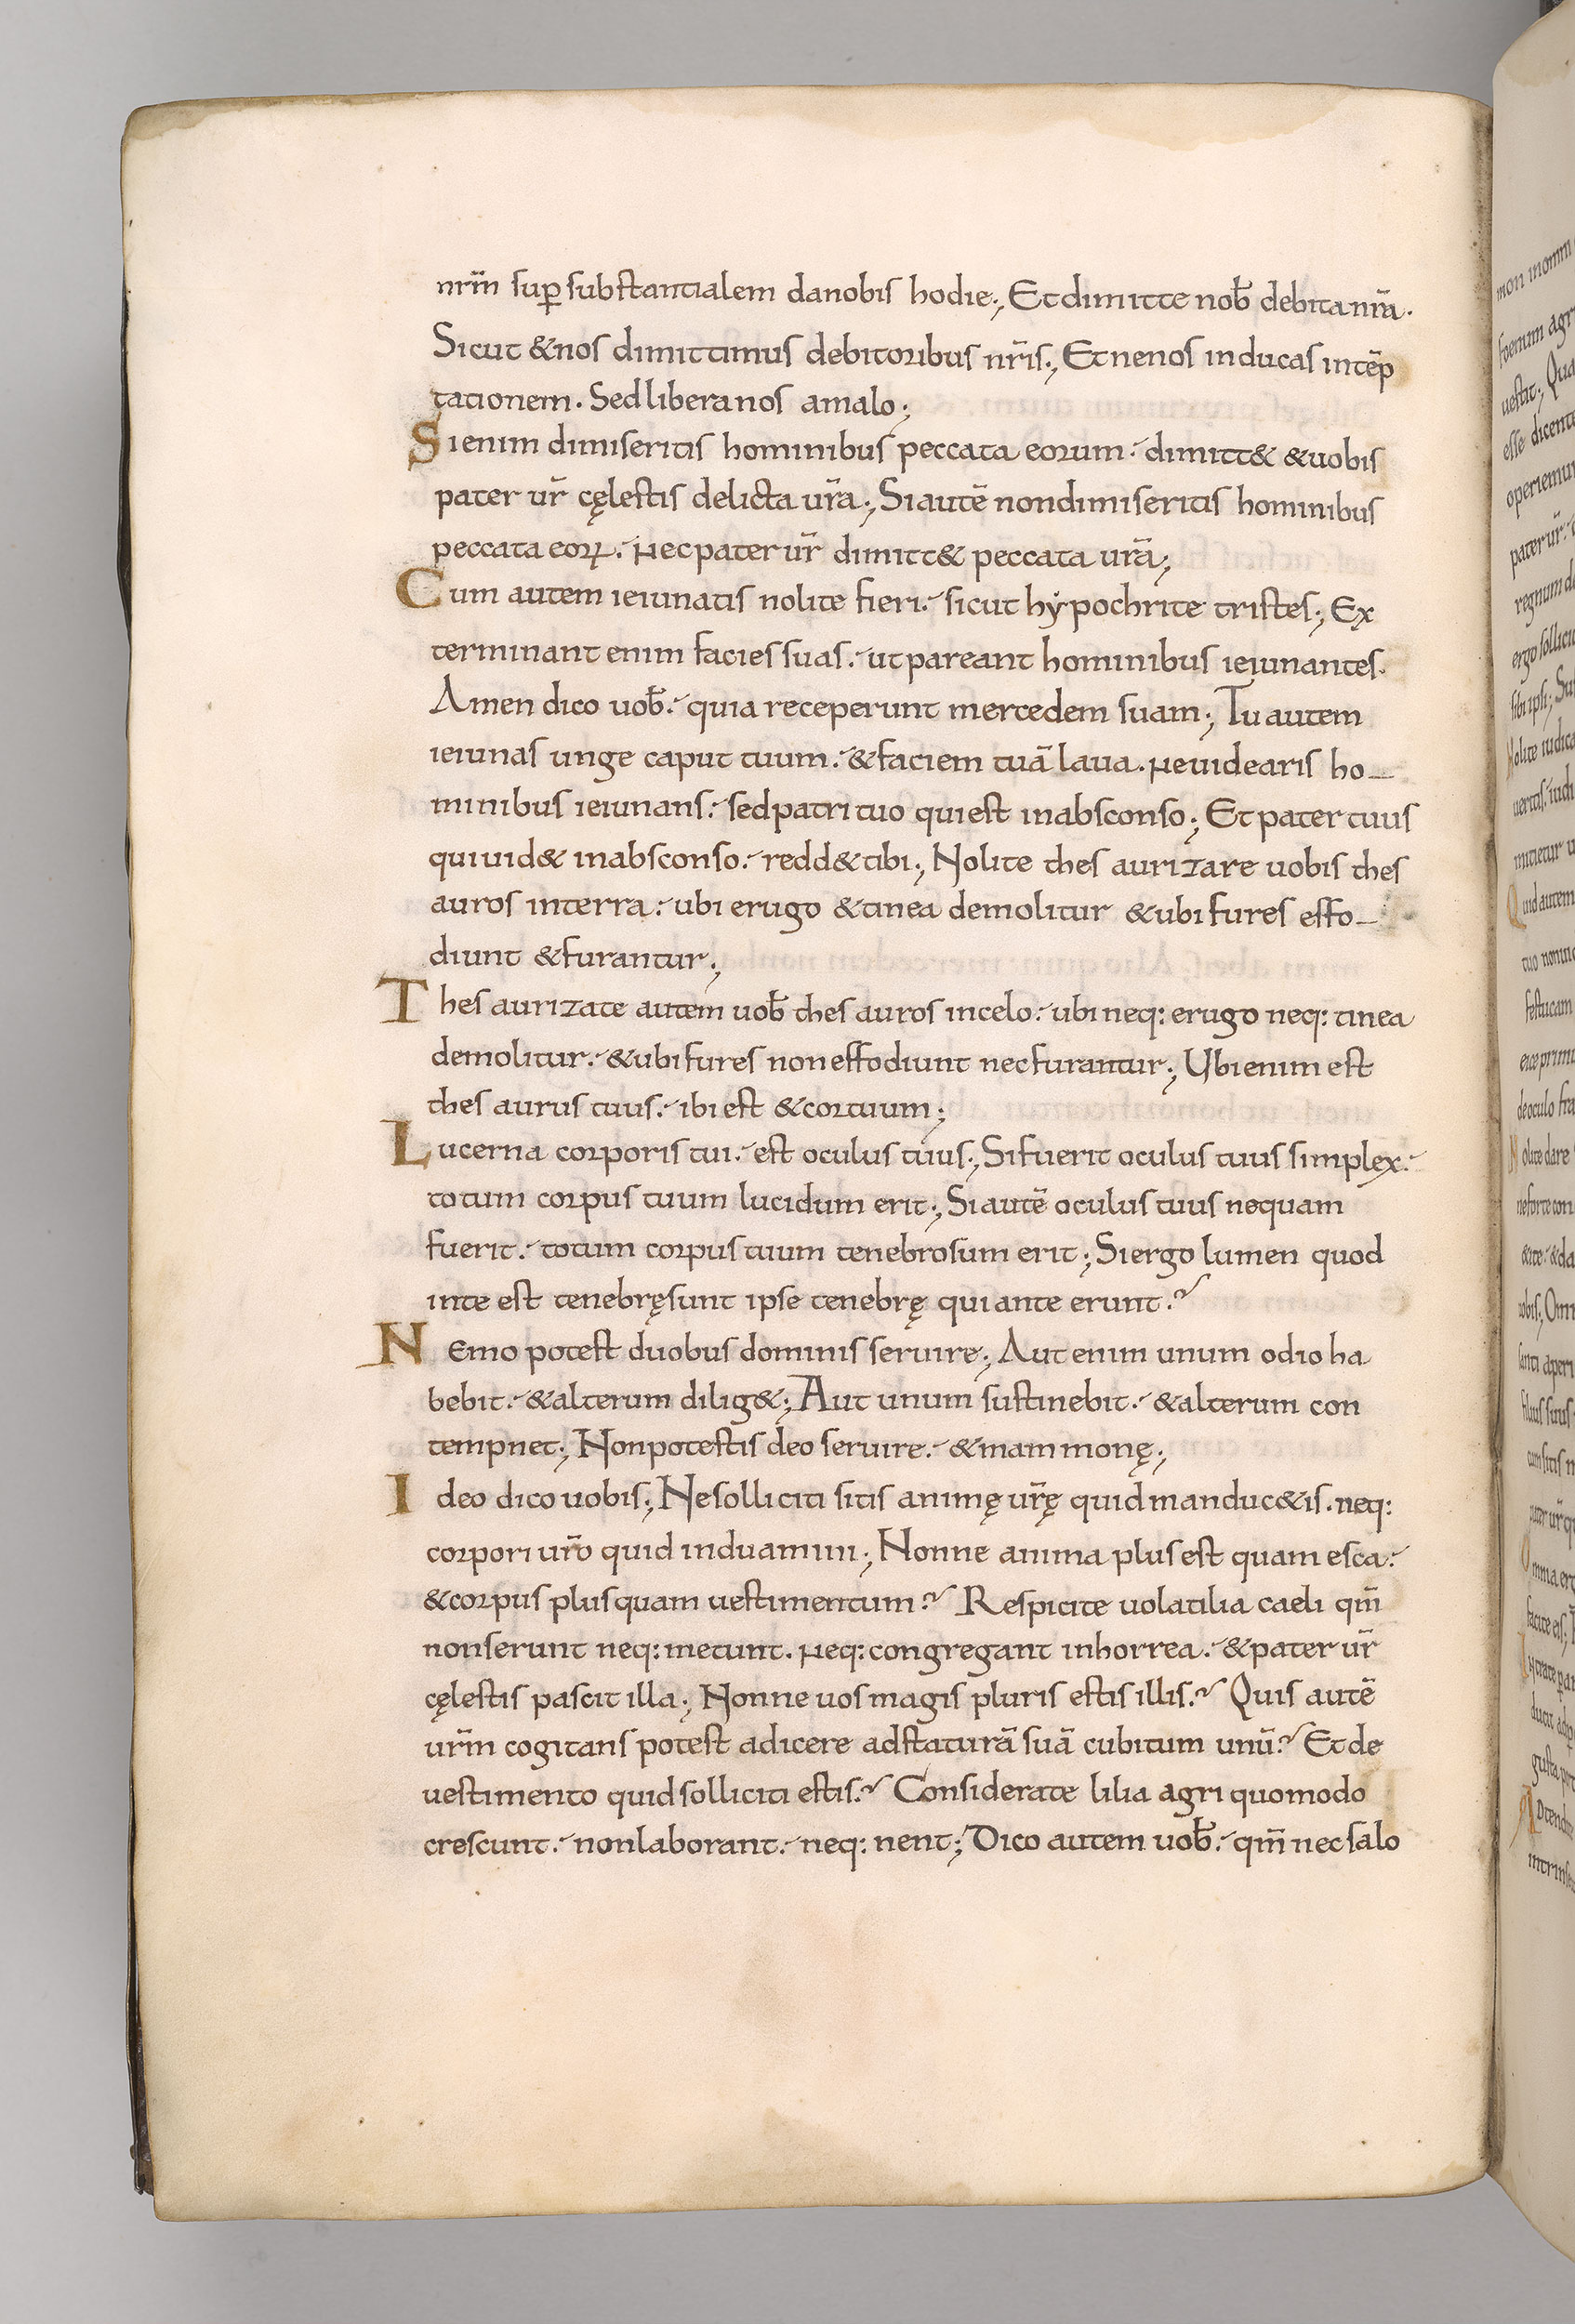 nr̄m sup̲ substantialem danobis hodie; Et dimitte nob̄ debita nr̄a.
Sicut & nos dimittimus debitoribus nr̄is; Et nenos inducas intēp
tationem. Sed libera nos amalo;
Si enim dimiseritis hominibus peccata eorum. dimitt& & uobis
pater ur̄ cęlestis delicta ur̄a; Si autē non dimiseritis hominibus
peccata eoꝝ. Nec pater ur̄ dimitt& peccata ur̄a;
Cum autem ieiunatis nolite fieri. sicut hẏpochrite tristes; Ex
terminant enim facies suas. ut pareant hominibus ieiunantes.
Amen dico uob̄. quia receperunt mercedem suam; Tu autem
ieiunas unge caput tuum. & faciem tuā laua. Ne uidearis ho-
minibus ieiunans. sed patri tuo qui est inabsconso; Et pater tuus
qui uid& inabsconso. redd& tibi; Nolite thesaurizare uobis thes
auros interra. ubi erugo & tinea demolitur & ubi fures effo-
diunt & furantur;
Thesaurizate autem uob̄ thesauros incelo. ubi neq: erugo neq: tinea
demolitur. & ubi fures non effodiunt nec furantur; Ubi enim est
thesaurus tuus. ibi est & cor tuum;
Lucerna corporis tui. est oculus tuus; Si fuerit oculus tuus simplex.
totum corpus tuum lucidum erit; Si autē oculus tuus nequam
fuerit. totum corpus tuum tenebrosum erit; Si ergo lumen quod
inte est tenebrę sunt ipse tenebrę qui ante erunt?
Nemo potest duobus dominis seruire; Aut enim unum odio ha
bebit. & alterum dilig&; Aut unum sustinebit. & alterum con
tempnet; Non potestis deo seruire. & mammonę;
Ideo dico uobis; Ne solliciti sitis animę ur̄ę quid manduc&is. neq:
corpori ur̄o quid induamini; Nonne anima plus est quam esca.
& corpus plus quam uestimentum? Respicite uolatilia caeli qm̄
non serunt neq: metunt. Neq: congregant inhorrea. & pater ur̄
cęlestis pascit illa; Nonne uos magis pluris estis illis? Quis autē
ur̄m cogitans potest adicere adstaturā suā cubitum unū? Et de
uestimento quid solliciti estis? Considerate lilia agri quomodo
crescunt. non laborant. neq: nent; Dico autem uob̄. qm̄ nec salo